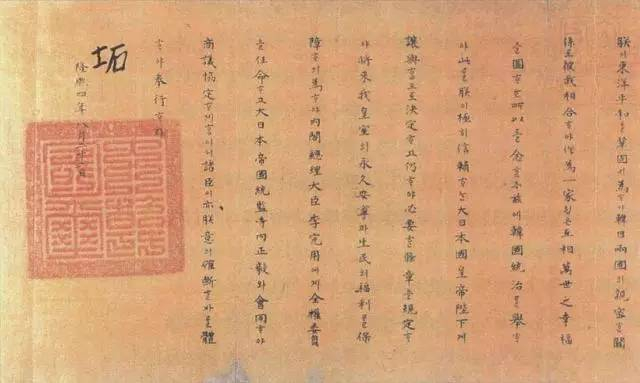 朕이東洋平和를鞏固키爲ᄒᆞ야韓日兩國의親密ᄒᆞᆫ關
係로彼我相合ᄒᆞ야作爲一家ᄂᆞᆫ互相萬世之幸福
을圖ᄒᆞᄂᆞᆫ所以를念ᄒᆞᆫ玆에韓國統治를擧ᄒᆞ
야此를朕이極히信賴ᄒᆞᄂᆞᆫ大日本國皇帝陛下게
讓與ᄒᆞ기로決定ᄒᆞ고仍ᄒᆞ야必要ᄒᆞᆫ條章을規定ᄒᆞ
야將來我皇室의永久安寧과生民의福利를保
障ᄒᆞ기爲ᄒᆞ야內閣總理大臣李完用에게全權委員
을任命ᄒᆞ고大日本帝國統監寺內正毅와會同ᄒᆞ야
商議協定ᄒᆞ게ᄒᆞ노니諸臣이亦朕意의確斷ᄒᆞᆫ바를體
ᄒᆞ야奉行ᄒᆞ라
隆熙四年八月二十二日
坧